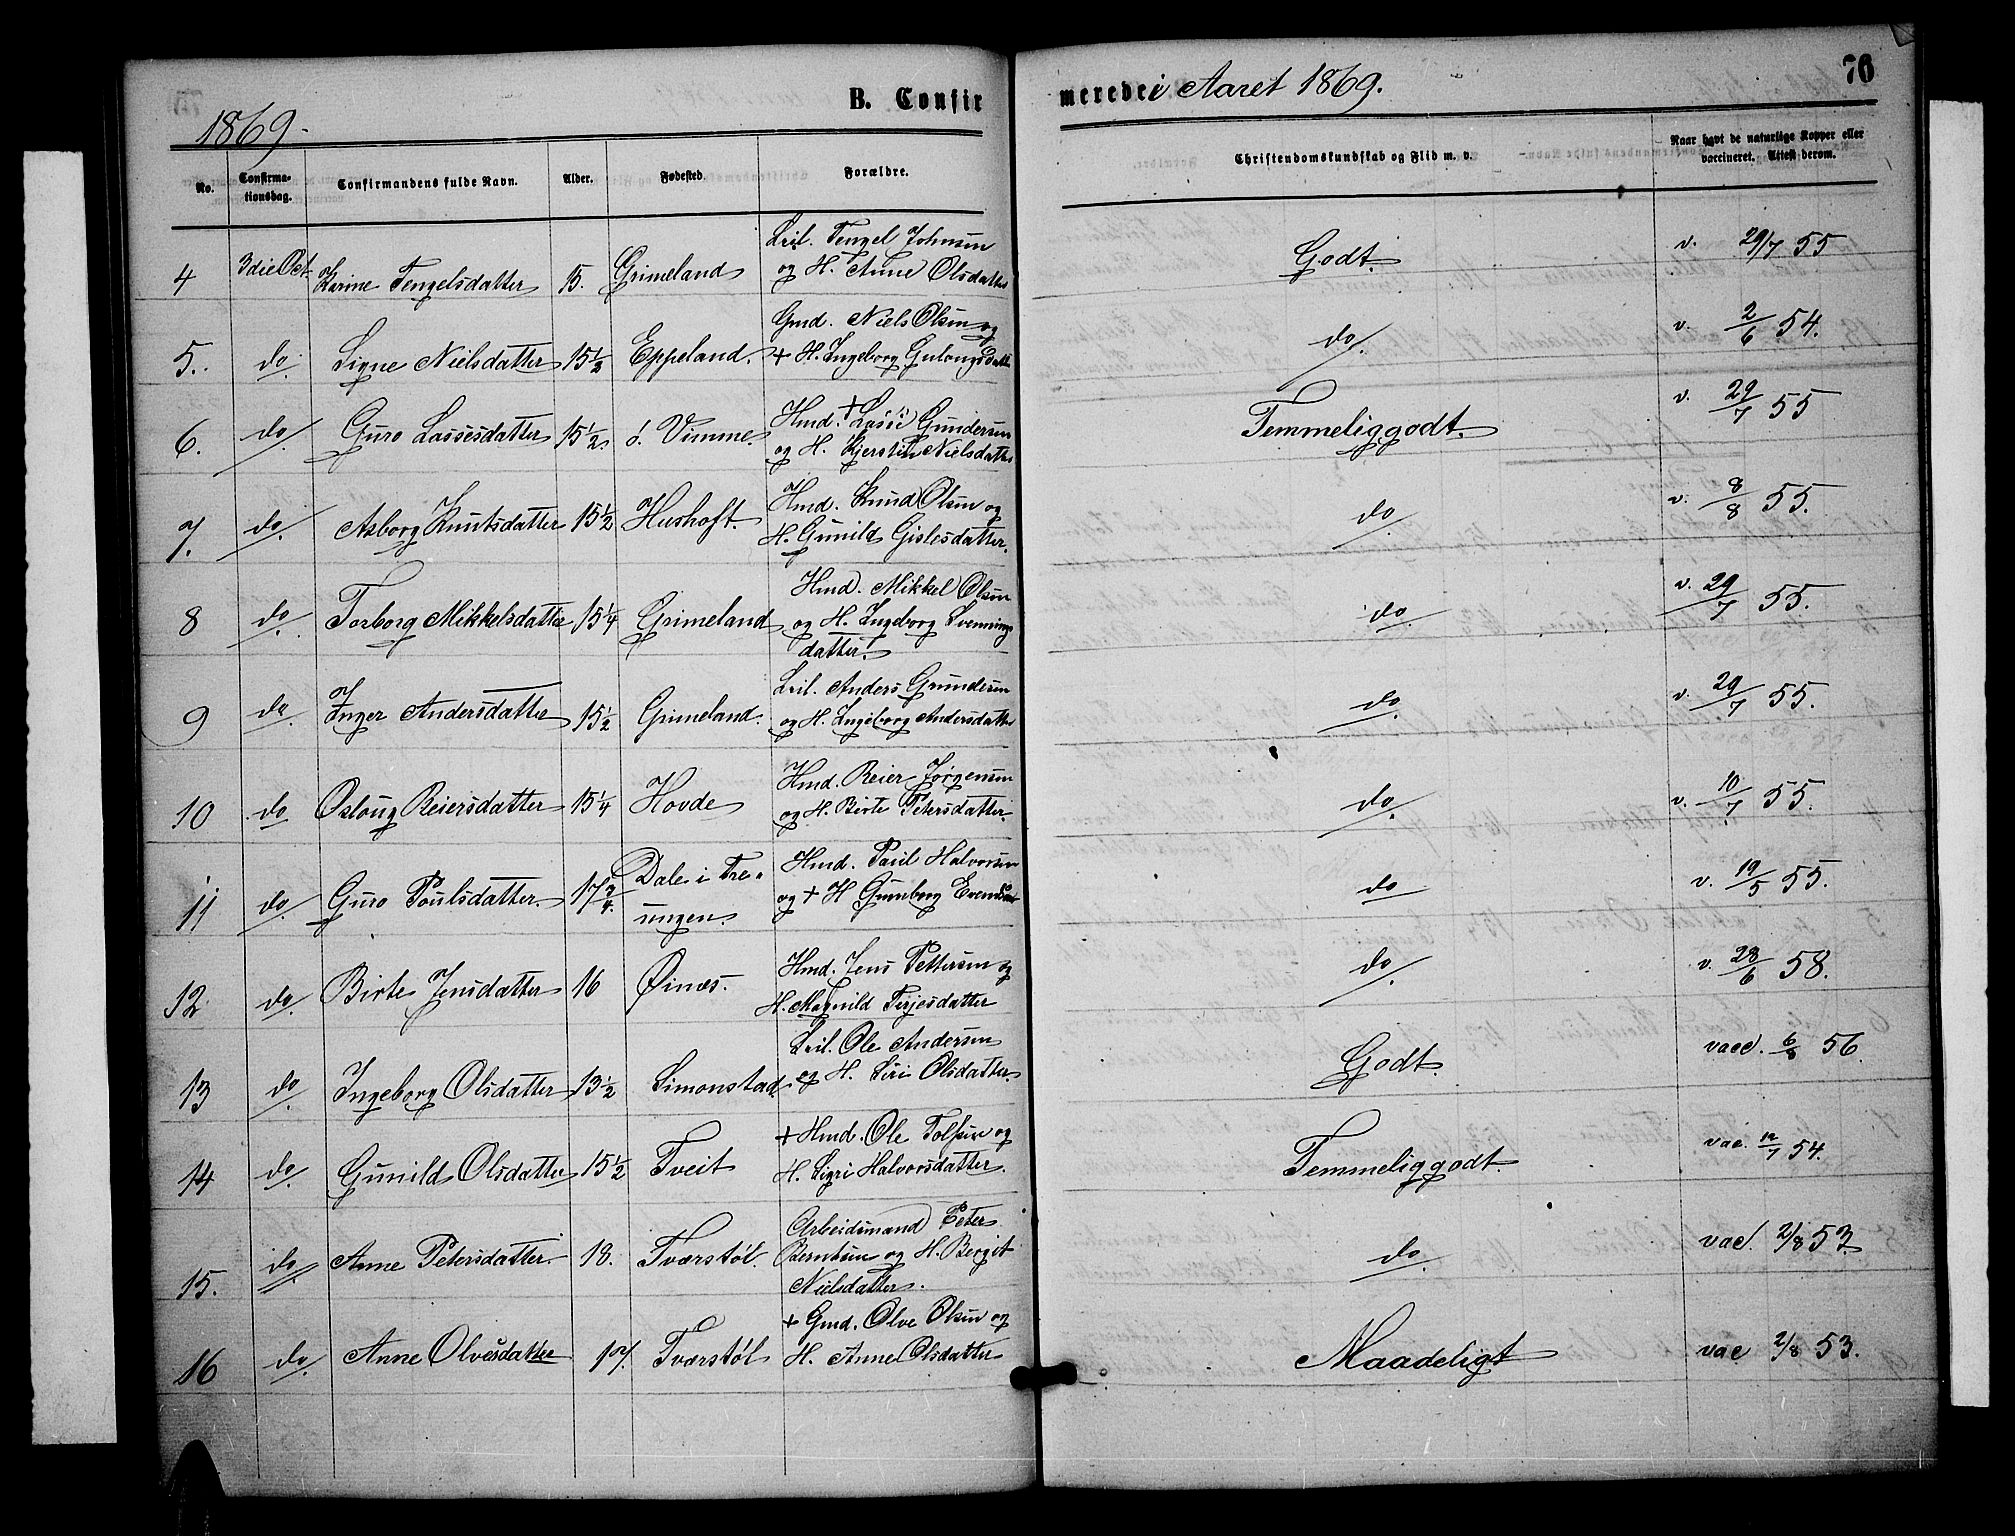 76
B. Confirmerede i Aaret 1869.
1869.
No. Confirmationsdag. Confirmandens fulde Navn. Alder. Fødested. Forældre. Christendomskundskab og Flid m. v. Naar havt de naturlige Kopper eller vaccineret. Attest derom.
4 3die Oct. Karine Tengelsdatter 15. Grimeland Leil. Tengel Johnsen
og H. Anne Olsdatter Godt. v. 29/7 55
5. do. Signe Nielsdatter 15 1/2 Eppeland. Gmd. Niels Olsen og
+ H. Ingeborg Gulougsdatter do. v. 2/6 54.
6. do. Guro Lassesdatter 15 1/2. ó. Vimme. Hmd. + Lasse Gundersen
og H. Kjersten Nielsdatter Temmeliggodt. v. 29/7 55
7. do. Asborg Knutsdatter 15 1/2 Hushoft. Hmd. Knud Olsen og
H. Gunild Gislesdatter. do. v. 8/8 55.
8 do. Torborg Mikkelsdatter 15 1/4 Grimeland Hmd. Mikkel Olsen
og H. Ingeborg Svennings
datter. do. v. 29/7 55.
9 do. Inger Andersdatter 15 1/2 Grimeland. Leil. Anders Gundersen
og H. Ingeborg Andersdatter do. v. 29/7 55.
10 do. Osloug Reiersdatter 15 1/4 Hovde Hmd. Reier Jørgensen
og H. Birte Petersdatter. do. v. 10/7 55.
11 do. Guro Poulsdatter. 17 3/4. Dale i Tre-
ungen. Hmd. Paul Halvorsen
og + H Gunborg Evensdatter do v. 19/5 55.
12 do. Birte Jensdatter 16 Øinæs. Hmd. Jens Pettersen og
H. Magnild Terjesdatter do. v. 28/6 58.
13 do. Ingeborg Olsdatter 13 1/2 Simonstad. Leil. Ole Andersen
og H. Siri Olsdatter. Godt. vacc. 6/8 56
14 do. Gunild Olsdatter 15 1/2 Tveit + Hmd. Ole Tolfsen og
H. Sigri Halvorsdatter. Temmeliggodt. vac. 12/7 54.
15. do. Anne Petersdatter. 18. Tværstøl. Arbeidsmand Peter
Berntsen og H. Bergit
Nielsdatter. do. vac. 2/8 53.
16 do. Anne Olvesdatter 17. Tværstøl + Gmd. Olve Olsen og
H. Anne Olsdatter Maadeligt vac 2/8 53.